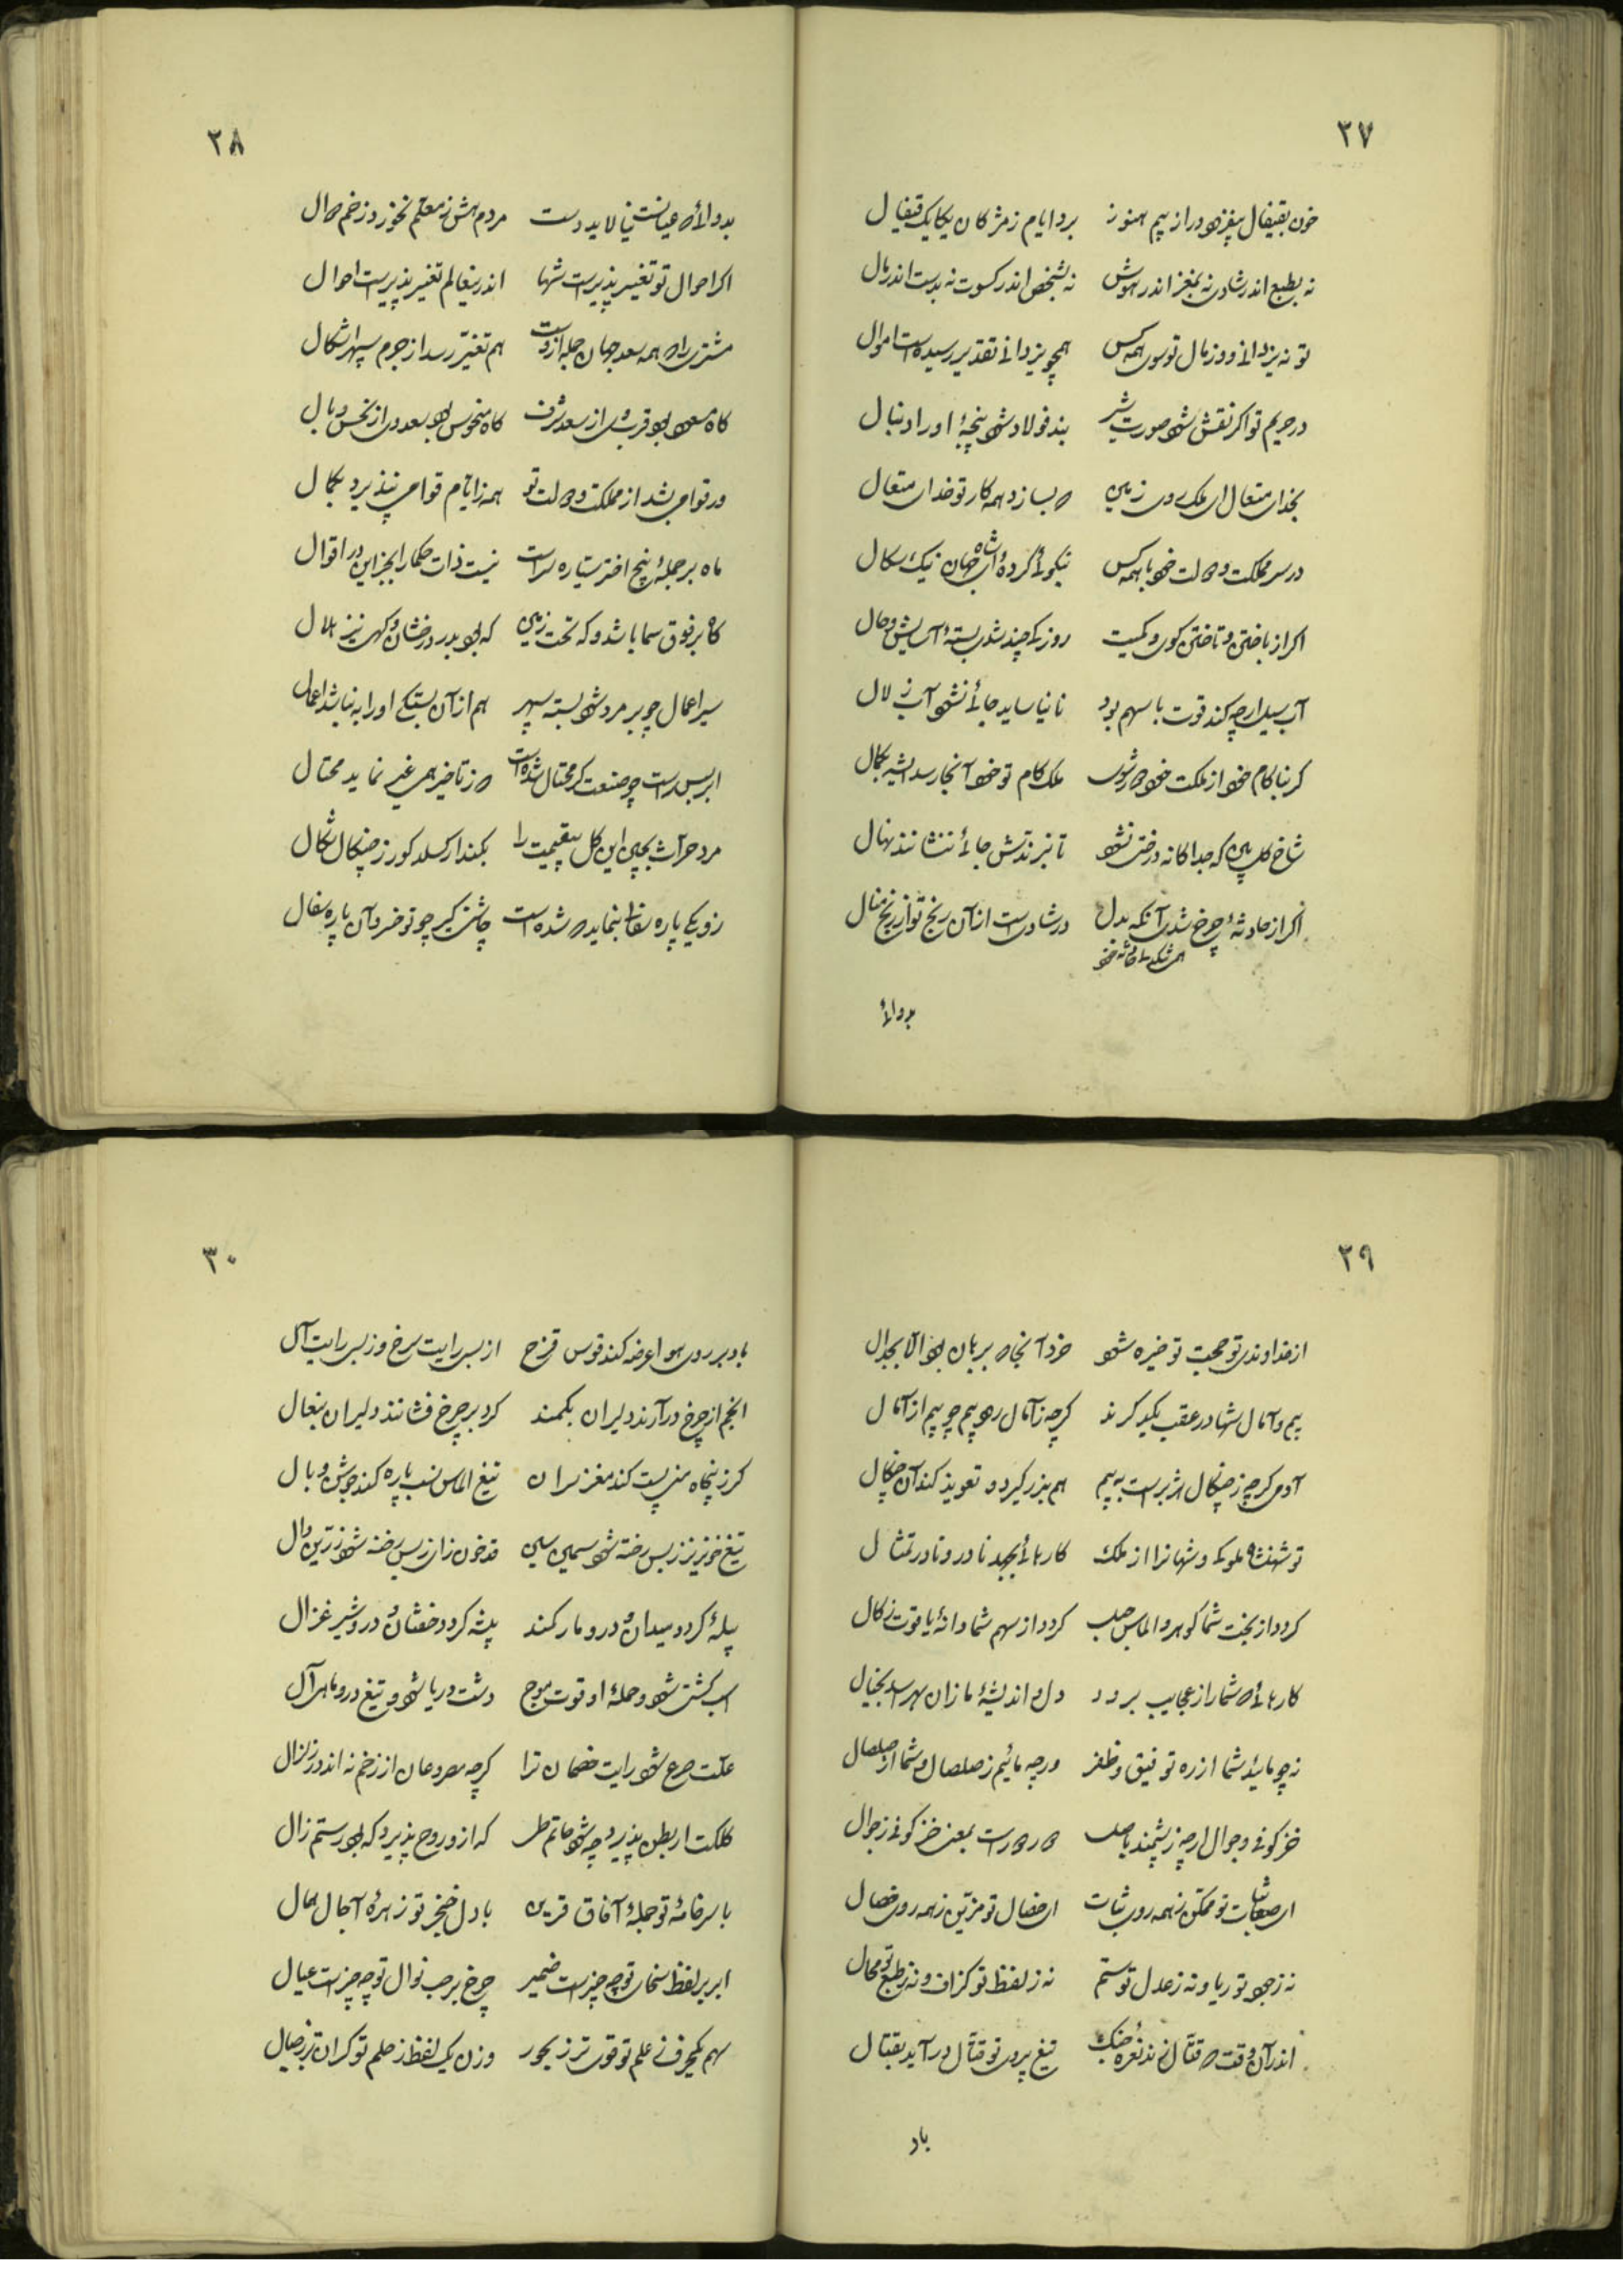 ۲۷
خون بقیفال بیفزود در از بیم هنوز برد ایام ز مژگان یکایک قیفال
نه بطبع اندر شادی نه بمغز اندر هوش نه بشخص اندر کسوت نه بدست اندر مال
تو نه یزدانی و وز مال تو سوی همه کس همچو یزدانی تقدیر رسیده است اموال
در حریم تو اگر نقش شود صورت شیر بند فولاد شود پنجهٔ او را دنبال
بخدای متعال ای ملک روی زمین که بسازد همه کار تو خدای متعال
در سر مملکت و دولت خود با همه کس نیکوئی کردهٔ ای شاه جهان نیک سگال
اگر از باختن و تاختن گوی و کمیت روزکی چند شدی بستهٔ آسایش و حال
آب سیل ارچه کند قوت با سهم بود تا نیاساید جائی نشود آب زلال
گر بناکام خود از ملکت خود دور شوی ملک کام تو خود آنجا رسد ایشه بکمال
شاخ گل بین که جداگانه درختی نشود تا نبرندش جائی ننشانند نهال
اگر از حادثهٔ چرخ شدی آنکه بدل در شادیست از آن رنج تو از رنج منال
بدوائی
۲۸
بدوائی که عیانست نیالاید دست مردم هش ز معلم نخورد زخم دوال
اگر احوال تو تغییر پذیرست شها اندرین عالم تغییر پذیرست احوال
مشتری را که همه سعد جهان جمله ازوست هم تغیر رسد از جرم سپهر اشکال
گاه مسعود بود قربش از سعد شرف گاه منحوس بود بعد وی از نحس وبال
ور توامی بشد از مملکت و دولت تو همه ز ایام قوامی بپذیرد بکمال
ماه بر جملهٔ پنج اختر سیاره سراست نیست ذات حکما را بجز این در اقوال
گاه بر فوق سما باشد و گه تحت زمین گه بود بدر درخشان و گهی نیز هلال
سیر اعمال چو بر مرد شود بسته سپهر هم از آن بستگی او را به نیابند اعمال
ابر بس راست چو صنعت گر محتال شده است که ز تاخیر همی غیر نماید محتال
مرد حراث بچین این گل بی قیمت را بکمند ار گسلد گور ز چنگال شکال
زو یکی پاره سفال بنماید که شده است چاشنی گیر چو تو خسرو آن پاره سفال
۲۹
از خداوندی تو حجت تو خیره شود خرد آنجا که بر برهان بود آلا بجدال
بیم و آمال شها در عقب یکدگرند گرچه ز آمال رهد بیم چو بیم از آمال
آدمی گرچه ز چنگال هژبرست به بیم هم بزر گیرد و تعویذ کند آن چنگال
تو شهنشاه ملوکی و شهانرا از ملک کارهائی بجهد نادر و نادر تمثال
گردد از بخت شما گوهر و الماس حلب گردد از سهم شما دانهٔ یاقوت زگال
کارهائی که شما را ز عجایب برود دل و اندیشهٔ ما زان بهراسد بخیال
نه چو مائید شما از ره توفیق و ظفر ورچه مائیم ز صلصال و شما از صلصال
خز گونی و جوال ارچه ز پشمند باصل که رو داست بمعنی خز گونی ز جوال
ای صفات تو ممکن ز همه روی ثبات ای خصال تو مزین ز همه روی خصال
نه ز جود تو ریا و نه ز عدل تو ستم نه ز لفظ تو گزاف و نه ز طبع تو محال
اندر آن وقت که قتال زند نعرهٔ جنگ تیغ پروی تو قتال در آید بقتال
باد
۳۰
باد بر روی هوا عرضه کند قوس قزح از بس رایت سرخ و ز بس رایت آل
انجم از چرخ در آرند دلیران بکمند گرد بر چرخ فشانند دلیران بنعال
گرز پنجاه منی پست کند مغز سران تیغ الماس نسب پاره کند جوشن و بال
تیغ خونریز ز بس رخنه شود سیمین سین قد خون زان ز بس رخنه شود زرین دال
پیله گردد میدان و درو مار کمند بیشه گردد خفتان و درو شیر غزال
اسب کشتی شود و حملهٔ او قوت موج دشت دریا شود و تیغ درو ماهی آل
علت صرع شود رایت خصمان ترا گرچه مصروعان از زخم نه اندر زلزال
کلکت ار بطن پذیرد چه شود حاتم طی که ازو روح پذیرد که بود رستم زال
با سر خامهٔ تو جملهٔ آفاق قرین با دل خنجر تو زهرهٔ آجال همال
ابر بر لفظ سخای تو چه چیزست ضمیر چرخ بر حسب نوال تو چه چیزست عیال
سهم یکحرف ز علم تو قوی تر ز بحور وزن یک لفظ ز حلم تو گران تر ز جبال